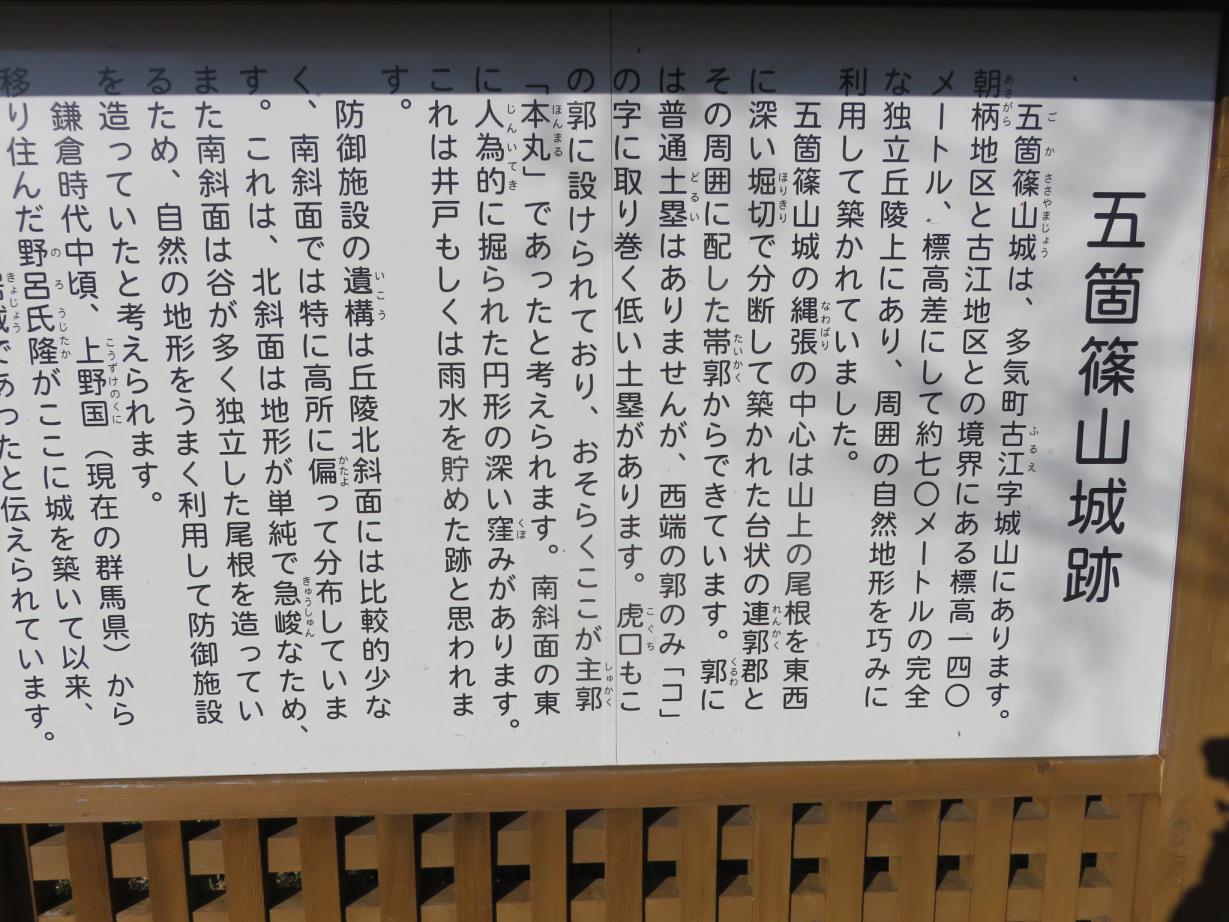 五箇篠山城跡
五箇篠山城は、多気町古江字城山にあります。
朝柄地区と古江地区との境界にある標高一四〇
メートル、標高差にして約七〇メートルの完全
な独立丘陵上にあり、周囲の自然地形を巧みに
利用して築かれていました。
五箇篠山城の縄張の中心は山上の尾根を東西
に深い堀切で分断して築かれた台状の連郭郡と
その周囲に配した帯郭からできています。郭に
は普通土塁はありませんが、西端の郭のみ「コ」
の字に取り巻く低い土塁があります。虎口もこ
の郭に設けられており、おそらくここが主郭
「本丸」であったと考えられます。南斜面の東
に人為的に掘られた円形の深い窪みがあります。
これは井戸もしくは雨水を貯めた跡と思われま
す。
防御施設の遺構は丘陵北斜面には比較的少な
く、南斜面では特に高所に偏って分布していま
す。これは、北斜面は地形が単純で急峻なため、
また南斜面は谷が多く独立した尾根を造ってい
るため、自然の地形をうまく利用して防御施設
を造っていたと考えられます。
鎌倉時代中頃、上野国（現在の群馬県）から
移り住んだ野呂氏隆がここに城を築いて以来、
城であったと伝えられています。